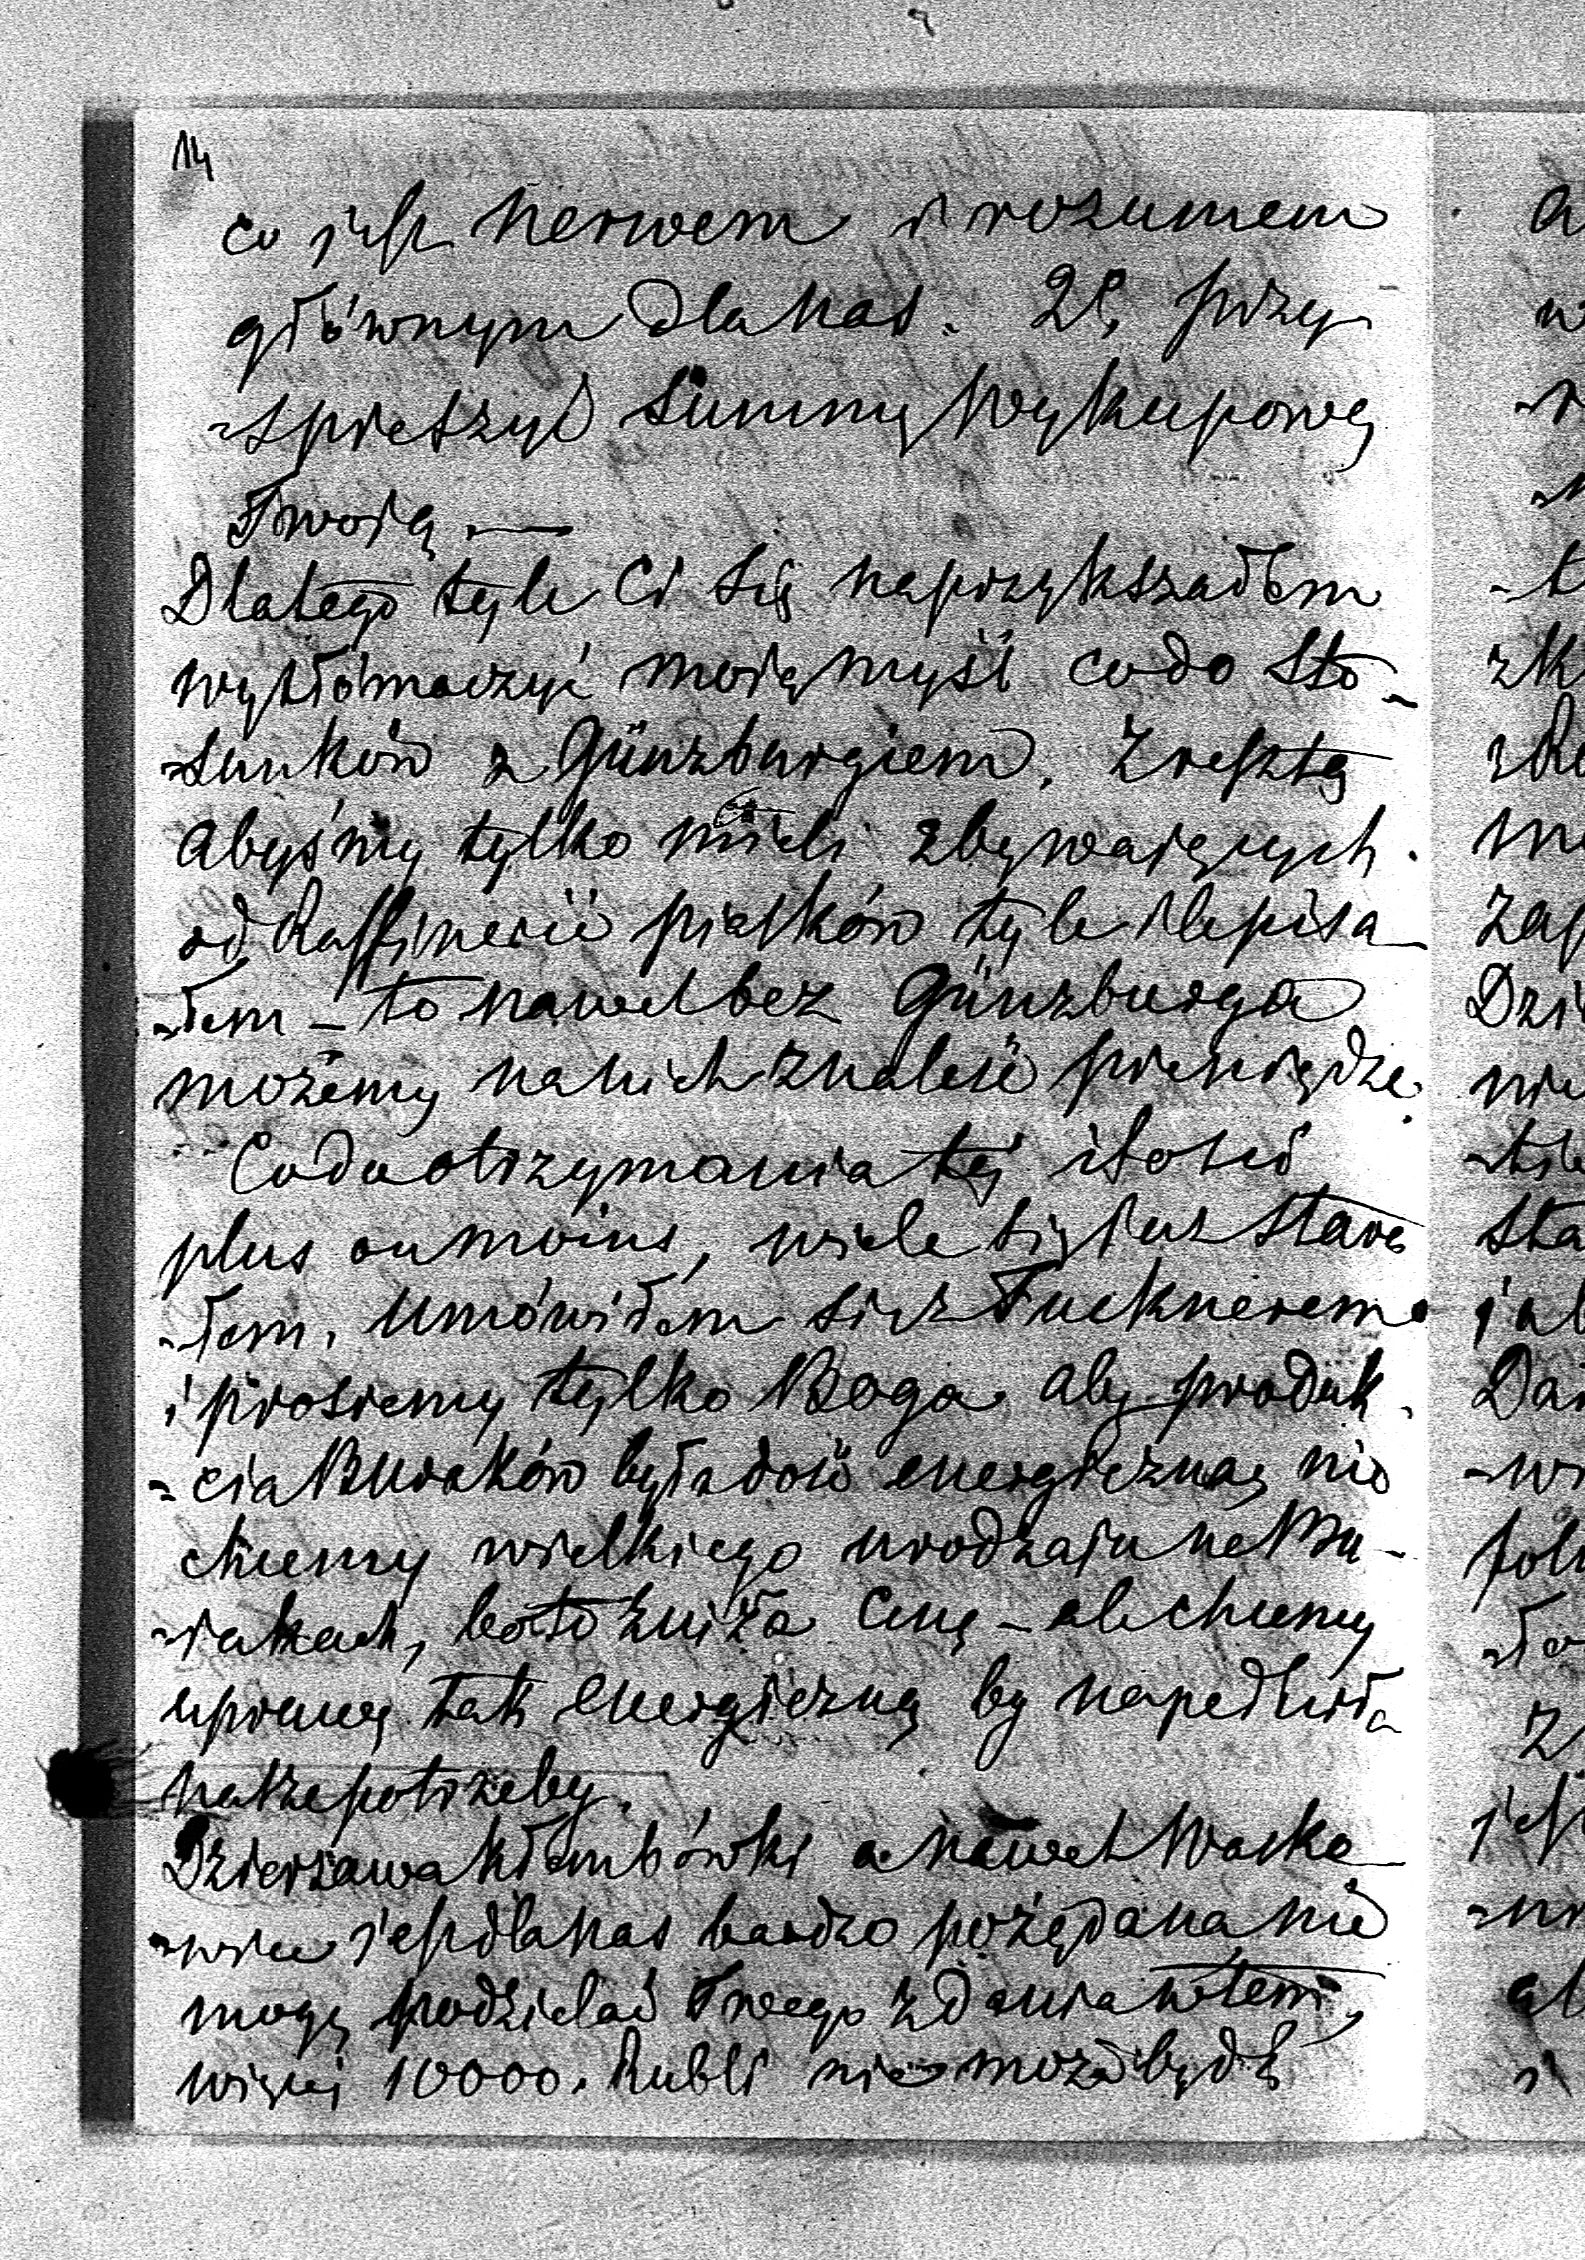 14
co jest nerwem i rozumem
głównym dla nas. 2º, przy-
-spieszyć Summę Wykupową
Twoią. —
Dlatego tyle Ci się naprzykszałem
wytłómaczyć moią myśl co do Sto-
-sunków z Günzburgiem. Zresztą
abyśmy tylko mieli zbywaiących
od Raffinerii piasków tyle ile pisa-
-łem – to nawet bez Günzburga
możemy na nich znaleść pieniądze.
Co do otrzymania tej ilości
plus ou moins, wiele się iuż stara
-łem. Umówiłem się z Fucknerem
i prosiemy tylko Boga aby produk-
-cia Buraków była dość energiczną, nie
chcemy wielkiego urodzaju na Bu-
-rakach, bo to zniża cenę – ale chcemy
uprawę tak energiczną by napełniła
nasze potrzeby.
Dzierżawa Kłembówki a nawet Waska
-wiec jest dla nas bardzo pożądana, nie
mogę podzielać Twego zdania w tem,
więcej 10000. Rubli nie może bydź